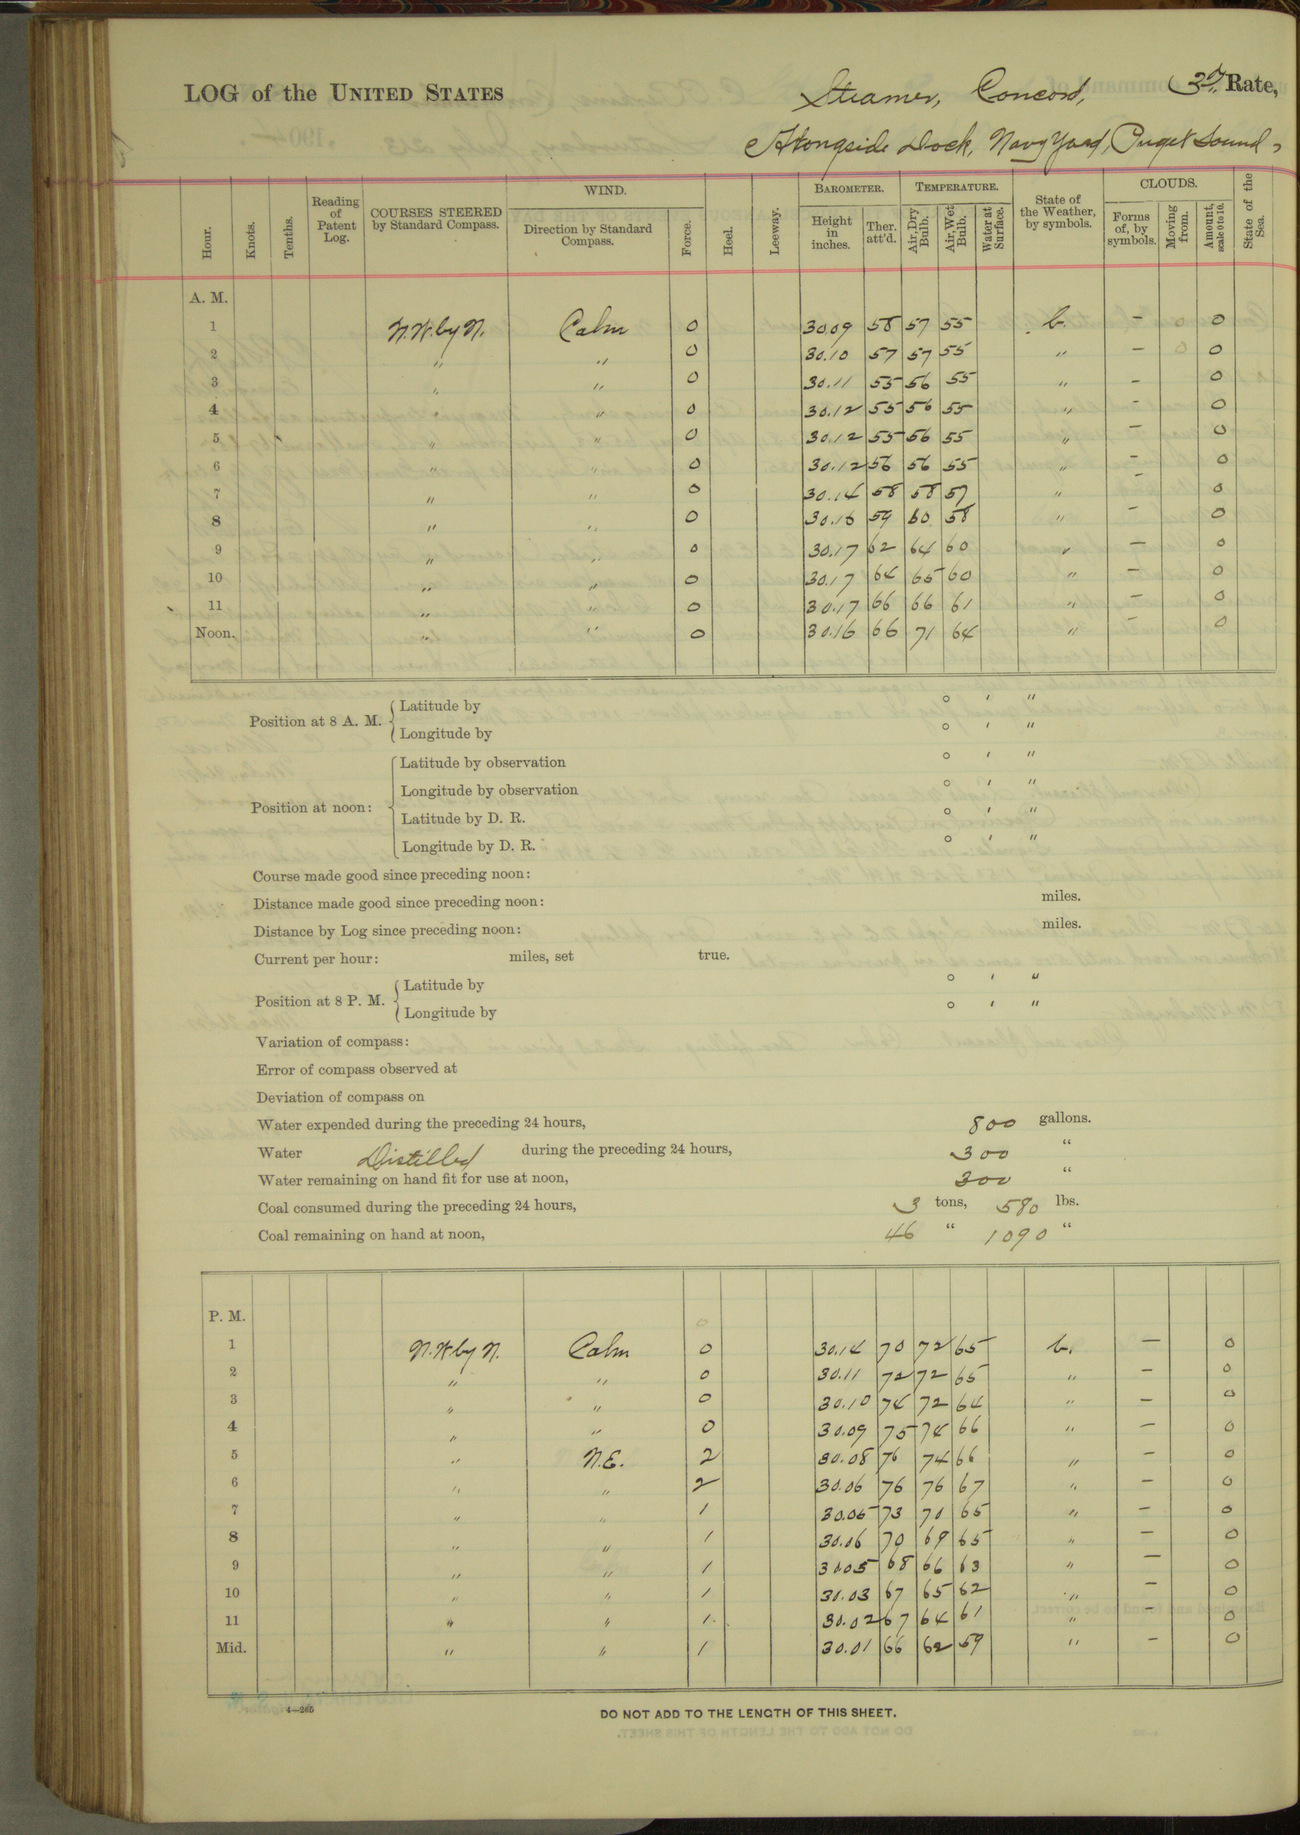 LOG of the UNITED STATES Steamer, Concord, 3d. Rate,
Alongside Dock, Navy Yard, Puget Sound,
Hour. Knots. Tenths. Reading of Patent Log. COURSES STEERED by Standard Compass. WIND. Direction by Standard Compass. Force. Heel. Leeway. BAROMETER. Height in inches. Ther. att'd. TEMPERATURE. Air, Dry Bulb. Air, Wet Bulb. Water at Surface. State of the Weather, by symbols. CLOUDS. Forms of, by symbols. Moving from. Amount, scale 0 to 10. State of the Sea.
A. M.
1 N.W. by N. Calm 0 30.09 58 57 55 b. — 0 0
2 " " 0 30.10 57 57 55 " — 0 0
3 " " 0 30.11 55 56 55 " — 0
4 " " 0 30.12 55 56 55 " — 0
5 " " 0 30.12 55 56 55 " — 0
6 " " 0 30.12 56 56 55 " — 0
7 " " 0 30.14 58 58 57 " — 0
8 " " 0 30.16 59 60 58 " — 0
9 " " 0 30.17 62 64 60 " — 0
10 " " 0 30.17 64 65 60 " — 0
11 " " 0 30.17 66 66 61 " — 0
Noon. " " 0 30.16 66 71 64 " — 0
Position at 8 A. M. { Latitude by ° ' "
Longitude by ° ' "
Position at noon: { Latitude by observation ° ' "
Longitude by observation ° ' "
Latitude by D. R. ° ' "
Longitude by D. R. ° ' "
Course made good since preceding noon:
Distance made good since preceding noon: miles.
Distance by Log since preceding noon: miles.
Current per hour: miles, set true.
Position at 8 P. M. { Latitude by ° ' "
Longitude by ° ' "
Variation of compass:
Error of compass observed at
Deviation of compass on
Water expended during the preceding 24 hours, 800 gallons.
Water Distilled during the preceding 24 hours, 300 "
Water remaining on hand fit for use at noon, 300 "
Coal consumed during the preceding 24 hours, 3 tons, 580 lbs.
Coal remaining on hand at noon, 46 " 1090 "
P. M.
1 N.W by N. Calm 0 30.14 70 72 65 b. — 0
2 " " 0 30.11 72 72 65 " — 0
3 " " 0 30.10 74 72 64 " — 0
4 " " 0 30.09 75 74 66 " — 0
5 " N.E. 2 30.08 76 74 66 " — 0
6 " " 2 30.06 76 76 67 " — 0
7 " " 1 30.05 73 70 65 " — 0
8 " " 1 30.06 70 69 65 " — 0
9 " " 1 30.05 68 66 63 " — 0
10 " " 1 30.03 67 65 62 " — 0
11 " " 1. 30.02 67 64 61 " — 0
Mid. " " 1 30.01 66 62 59 " — 0
4—265
DO NOT ADD TO THE LENGTH OF THIS SHEET.